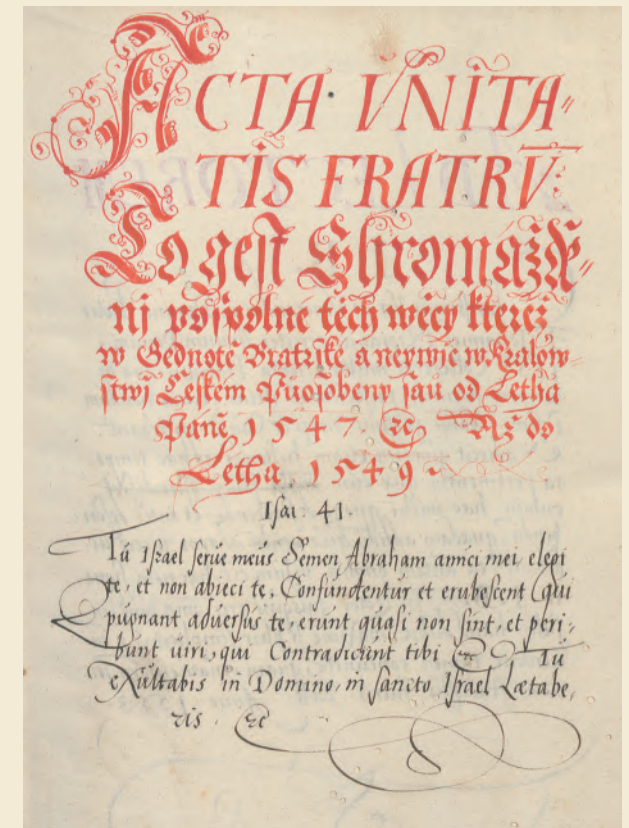 ACTA· VNITA=
TIS FRATRV̄:
To gest Shromáždě=
nj pospolné těch wěcy kteréž
w Gednotě Bratrské a neywíc w Králow=
stwj Českém Působeny sau od Letha
Páně 1547. &c Až do
Letha. 1549
Isai 41.
Tu Israel serue meus Semen Abraham amici mei, elegi
te, et non abieci te. Confundentur et erubescent qui
pugnant aduersus te, erunt quasi non sint, et peri=
bunt uiri, qui Contradicunt tibi &c Tu
exultabis in Domino, in sancto Israel Lætabe=
ris. &c